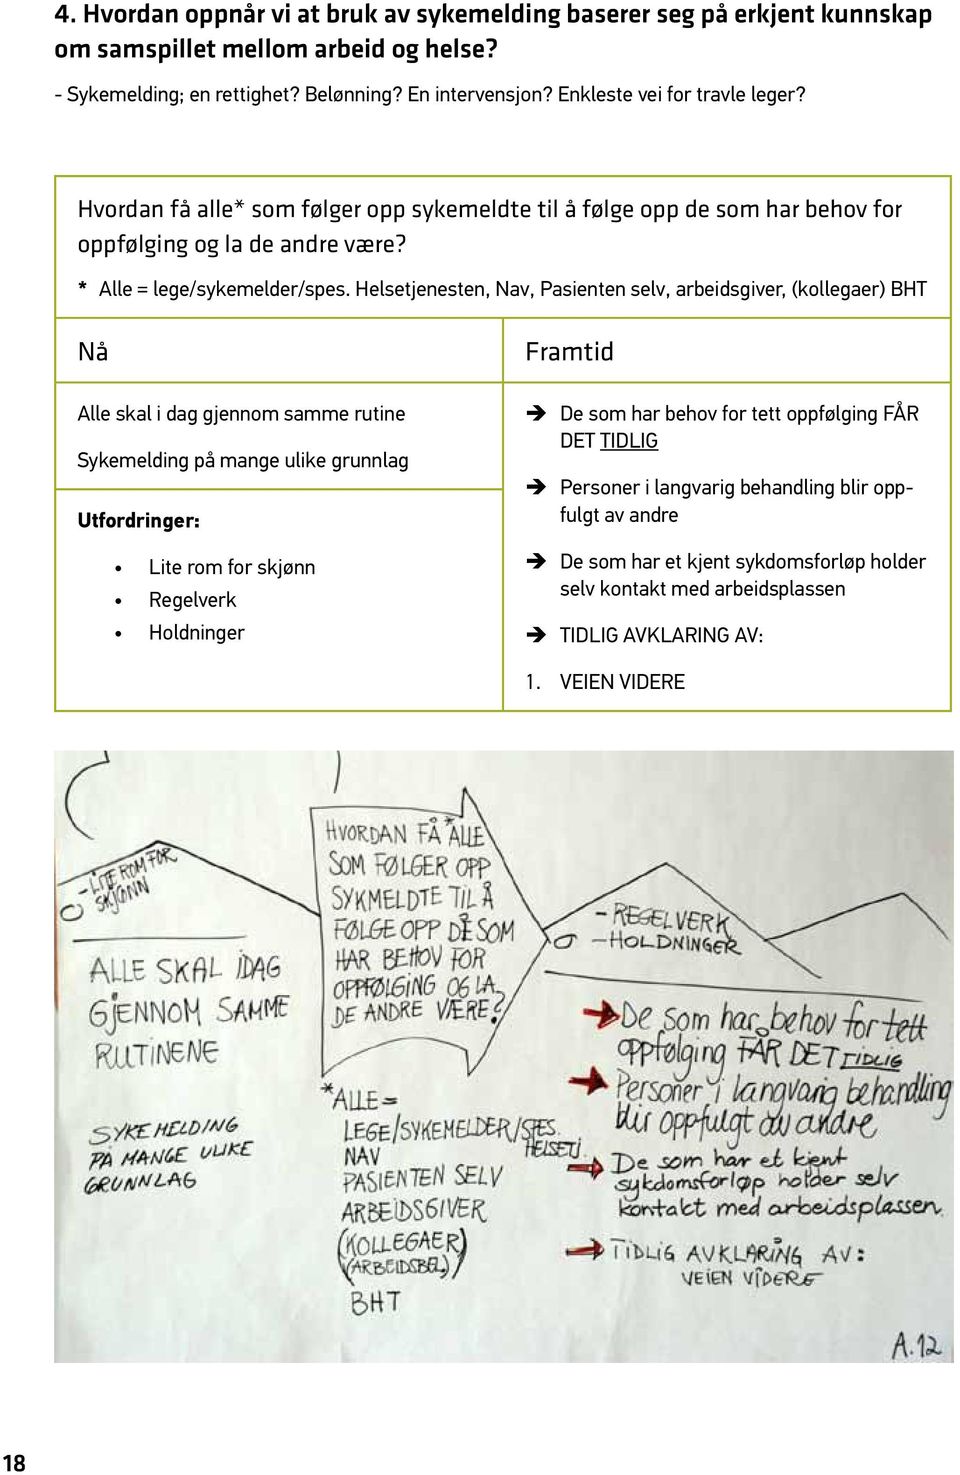 4. Hvordan oppnår vi at bruk av sykemelding baserer seg på erkjent kunnskap
om samspillet mellom arbeid og helse?
- Sykemelding; en rettighet? Belønning? En intervensjon? Enkleste vei for travle leger?
Hvordan få alle* som følger opp sykemeldte til å følge opp de som har behov for
oppfølging og la de andre være?
* Alle = lege/sykemelder/spes. Helsetjenesten, Nav, Pasienten selv, arbeidsgiver, (kollegaer) BHT
Nå
Alle skal i dag gjennom samme rutine
Sykemelding på mange ulike grunnlag
Utfordringer:
• Lite rom for skjønn
• Regelverk
• Holdninger
Framtid
➔ De som har behov for tett oppfølging FÅR
DET TIDLIG
➔ Personer i langvarig behandling blir opp-
fulgt av andre
➔ De som har et kjent sykdomsforløp holder
selv kontakt med arbeidsplassen
➔ TIDLIG AVKLARING AV:
1. VEIEN VIDERE
- LITE ROM FOR
SKJØNN
ALLE SKAL IDAG
GJENNOM SAMME
RUTINENE
SYKEMELDING
PÅ MANGE ULIKE
GRUNNLAG
HVORDAN FÅ *ALLE
SOM FØLGER OPP
SYKMELDTE TIL Å
FØLGE OPP DE SOM
HAR BEHOV FOR
OPPFØLGING OG LA
DE ANDRE VÆRE?
*ALLE=
LEGE/SYKEMELDER/SPES.
HELSETJ.
NAV
PASIENTEN SELV
ARBEIDSGIVER
(KOLLEGAER)
(ARBEIDSBEL.)
BHT
- REGELVERK
- HOLDNINGER
➔ De som har behov for tett
oppfølging FÅR DET TIDLIG
➔ Personer i langvarig behandling
blir oppfulgt av andre
➔ De som har et kjent
sykdomsforløp holder selv
kontakt med arbeidsplassen.
➔ TIDLIG AVKLARING AV:
VEIEN VIDERE
A.12
18